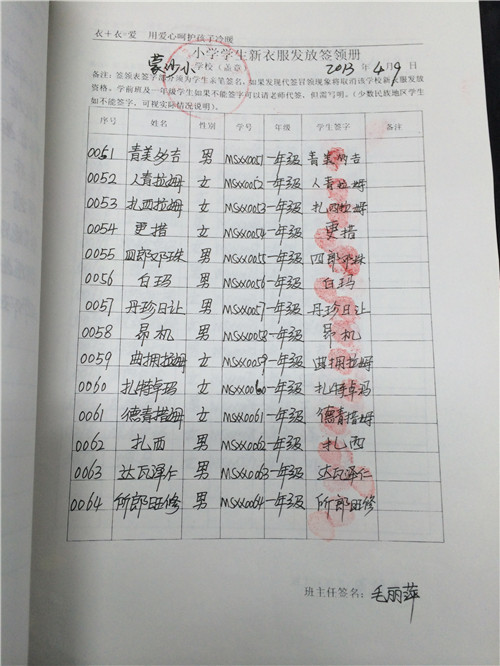 衣+衣=爱 用爱心呵护孩子冷暖
小学学生新衣服发放签领册
蒙沙小 学校(盖章) 2013 年 4 月 9 日
备注:签领衣签字部分须为学生亲笔签名,如果发现代签冒领现象将取消该学校新衣服发放
资格,学前班及一年级学生如果不能签字可以请老师代签,但需写明。(少数民族地区学生
如不能签字,可视实际情况说明)。
序号 姓名 性别 学号 年级 学生签字 备注
0051 青美多吉 男 MSXX0051 一年级 青美多吉
0052 人青拉姆 女 MSXX0052 一年级 人青拉姆
0053 扎西拉姆 女 MSXX0053 一年级 扎西拉姆
0054 更措 女 MSXX0054 一年级 更措
0055 四郎邓珠 男 MSXX0055 一年级 四郎邓珠
0056 白玛 男 MSXX0056 一年级 白玛
0057 丹珍日让 男 MSXX0057 一年级 丹珍日让
0058 昂机 男 MSXX0058 一年级 昂机
0059 曲拥拉姆 女 MSXX0059 一年级 曲拥拉姆
0060 扎特卓玛 女 MSXX0060 一年级 扎特卓玛
0061 德青措姆 女 MSXX0061 一年级 德青措姆
0062 扎西 男 MSXX0062 一年级 扎西
0063 达瓦泽仁 男 MSXX0063 一年级 达瓦泽仁
0064 所郎旺修 男 MSXX0064 一年级 所郎旺修
班主任签名: 毛丽萍